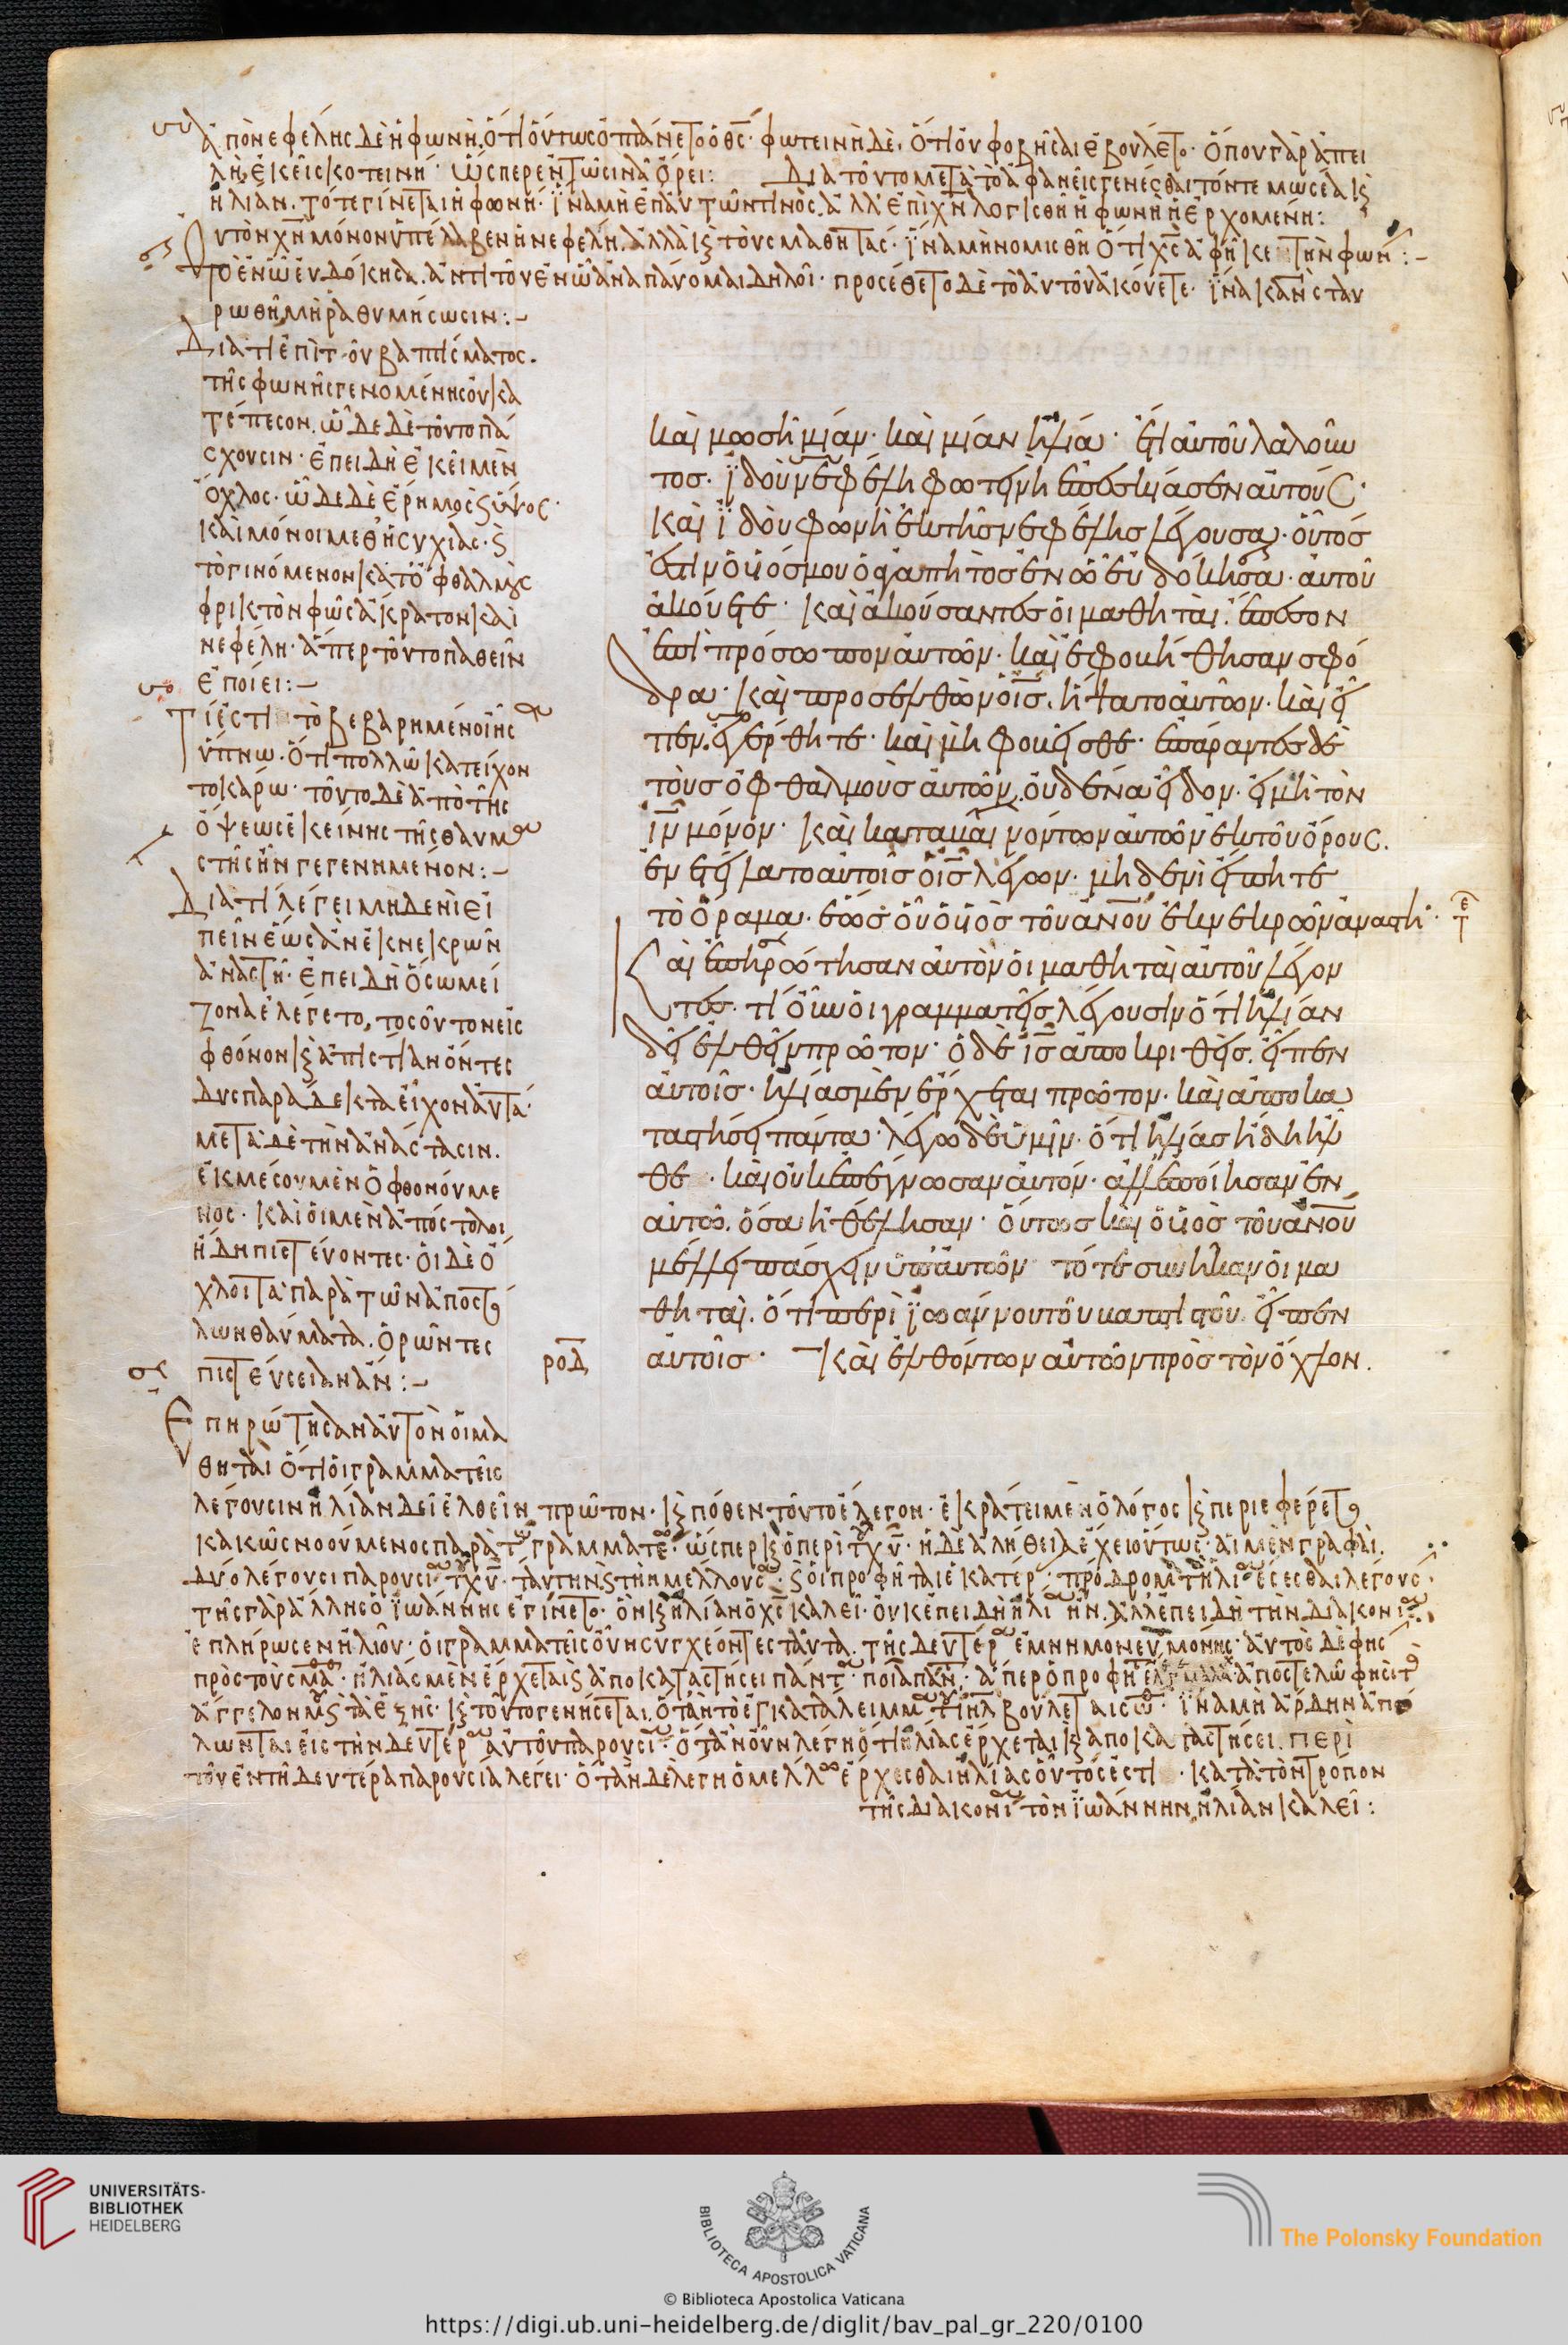 ἀπὸ νεφέλης δὲ ἡ φωνή, ὅτι οὕτως ἐπιφαίνετο ὁ θς· φωτεινὴ δὲ, ὅτι οὐ φοβῆσαι ἐβούλετο· ὅπου γὰρ ἀπει
λῆ, ἐκεῖ σκοτεινή· ὥσπερ ἐν τῶ σινᾶ ὄρει: Διατοῦτο μετὰ τὸ ἀφανεῖς γενέσθαι τόν τε μωσέα κ
ἡλίαν. τότε γίνεται ἡ φωνή· ἵνα μὴ ἐπ' αὐτῶν τινὸς, ἀλλ' ἐπὶ χν λογισθῆ ἡ φωνὴ ἡ ἐρχομένη:
υτὸν χν μόνον ὑπέλαβεν ἡ νεφέλη. ἀλλὰ κ τοὺς μαθητάς· ἵνα μὴ νομισθῆ ὅτι χς ἀφῆκε τὴν φωνή:-
τὸ ἐν ὧ εὐδόκησα, ἀντὶ τοῦ ἐν ὧ ἀναπαύομαι δηλοῖ· προσέθετο δὲ τὸ αὐτοῦ ἀκούετε· ἵνα κἂν σταυ
ρωθῆ, μὴ ῥαθυμήσωσιν:-
Διατί ἐπὶ τοῦ βαπτίσματος.
τῆς φωνῆς γενομένης οὐ κα
τέπεσον. ὧδε δὲ τοῦτο πά
σχουσιν· ἐπειδὴ ἐκεῖ μὲν
ὄχλος· ὧδε δὲ ἔρημος κ ὕψος·
καὶ μόνοι μεθ' ἡσυχίας· κ
τὸ γινόμενον κατ' ὀφθαλμοὺς
φρικτὸν φῶς ἄκρατον καὶ
νεφέλη· ἅπερ τοῦτο παθεῖν
ἐποίει:-
Τί ἐστι τὸ βεβαρημένοι ἦσαν
ὕπνω· ὅτι πολλῶ κατείχον
το κάρω· τοῦτο δὲ ἀπὸ τῆς
ὄψεως ἐκείνης τῆς θαυμα
στῆς ἦν γεγενημένον:-
Διατί λέγει μηδενὶ εἰ
πεῖν ἕως ἂν ἐκ νεκρῶν
ἀναστῆ· ἐπειδὴ ὅσω μεί
ζονα ἐλέγετο, τοσοῦτον εἰς
φθόνον κ ἀπιστίαν ὄντες
δυσπαράδεκτα εἶχον αὐτά·
μετὰ δὲ τὴν ἀνάστασιν.
ἐκ μέσου μὲν ὁ φθονούμε
νος· καὶ οἱ μὲν ἀπόστολοι
ἤδη πιστεύοντες· οἱ δὲ ὄ
χλοι τὰ παρὰ τῶν ἀποστό
λων θαύματα. ὁρῶντες
πιστεύσειαν ἄν:-
Ἐπηρώτησαν αὐτὸν οἱ μα
θηταὶ ὅτι οἱ γραμματεῖς
λέγουσιν ἡλίαν δεῖ ἐλθεῖν πρῶτον· κ πόθεν τοῦτο ἔλεγον· ἐκράτει μὲν ὁ λόγος κ περιεφέρετο
κακῶς νοούμενος παρὰ τῶν γραμματέων· ὥσπερ κ ὁ περὶ τοῦ χυ· ἡ δὲ ἀλήθεια ἔχει οὕτως· αἱ μὲν γραφαὶ.
δύο λέγουσι παρουσίας τοῦ χυ· ταύτην κ τὴν μέλλουσαν· κ οἱ προφῆται ἑκατέρας πρόδρομον τὸν ἡλίαν ἔσεσθαι λέγουσι
τῆς γὰρ ἄλλης ὁ ἰωάννης ἐγίνετο· ὃν κ ἡλίαν ὁ χς καλεῖ· οὐκ ἐπειδὴ ἡλίας ἦν. ἀλλ' ἐπειδὴ τὴν διακονίαν
ἐπλήρωσεν ἡλιοῦ· οἱ γραμματεῖς οὖν συγχέοντες ταῦτα. τῆς δευτέρας ἐμνημόνευον μόνης· αὐτὸς δέ φησι
πρὸς τοὺς μαθ· ἡλίας μὲν ἔρχεται κ ἀποκαταστήσει πάντα·
ἄγγελον
λωνται εἰς τὴν δευτέραν αὐτοῦ παρουσίαν· ὅταν οὖν λέγη ὅτι ἡλίας ἔρχεται κ ἀποκαταστήσει. περὶ
τοῦ ἐν τῆ δευτέρα παρουσία λέγει· ὅταν δὲ λέγη ὁ μέλλων ἔρχεσθαι ἡλίας οὗτός ἐστι· κατὰ τὸν τρόπον
τῆς διακονίας τὸν ἰωάννην, ἡλίαν καλεῖ:
καὶ μωσῆ μίαν· καὶ μίαν ἡλία· ἔτι αὐτοῦ λαλοῦν
τος· ἰδοὺ νεφέλη φωτεινὴ ἐπεσκίασεν αὐτούς·
καὶ ἰδοὺ φωνὴ ἐκ τῆς νεφέλης λέγουσα· οὗτός
ἐστιν ὁ υἱός μου ὁ ἀγαπητὸς ἐν ὧ εὐδόκησα· αὐτοῦ
ἀκούετε· καὶ ἀκούσαντες οἱ μαθηταὶ. ἔπεσον
ἐπὶ πρόσωπον αὐτῶν. καὶ ἐφοβήθησαν σφό
δρα· καὶ προσελθὼν ὁ ις. ἥψατο αὐτῶν. καὶ εἶ
πεν. ἐγέρθητε· καὶ μὴ φοβεῖσθε· ἐπάραντες δὲ
τοὺς ὀφθαλμοὺς αὐτῶν, οὐδένα εἶδον· εἰ μὴ τὸν
ιν μόνον· καὶ καταβαινόντων αὐτῶν ἐκ τοῦ ὄρους.
ἐνετείλατο αὐτοῖς ὁ ις λέγων· μηδενὶ εἴπητε
τὸ ὅραμα. ἕως οὗ ὁ υἱὸς τοῦ ανου ἐκ νεκρῶν ἀναστῆ·
Καὶ ἐπηρώτησαν αὐτὸν οἱ μαθηταὶ αὐτοῦ λέγον
τες. τί οὖν οἱ γραμματεῖς λέγουσιν ὅτι ἡλίαν
δεῖ ἐλθεῖν πρῶτον· ὁ δὲ ις ἀποκριθεὶς. εἶπεν
αὐτοῖς· ἡλίας μὲν ἔρχεται πρῶτον. καὶ ἀποκα
ταστήσει πάντα· λέγω δὲ ὑμῖν· ὅτι ἡλίας ἤδη ἦλ
θε· καὶ οὐκ ἐπέγνωσαν αὐτόν. ἀλλ' ἐποίησαν ἐν
αὐτῶ. ὅσα ἠθέλησαν· οὕτως καὶ ὁ υἱὸς τοῦ ανου
μέλλει πάσχειν ὑπ' αὐτῶν τότε συνῆκαν οἱ μα
θηταὶ. ὅτι περὶ ἰωάννου τοῦ βαπτιστοῦ. εἶπεν
ροδ αὐτοῖς· Καὶ ἐλθόντων αὐτῶν πρὸς τὸν ὄχλον.
UNIVERSITÄTS-
BIBLIOTHEK
HEIDELBERG
BIBLIOTECA APOSTOLICA VATICANA
The Polonsky Foundation
© Biblioteca Apostolica Vaticana
https://digi.ub.uni-heidelberg.de/diglit/bav_pal_gr_220/0100